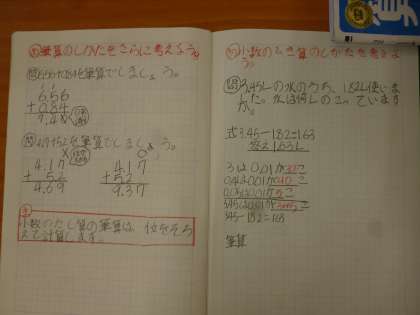 筆算のしかたをさらに考えよう。
6.56+2.84を筆算でしましょう。
6.56
+2.84
9.40
4.17+5.2を筆算でしましょう。
4.17
+ 5.2
4.69
4.17
+5.2
9.37
小数のたし算の筆算は、位をそろ
えて計算します。
小数のひき算のしかたを考えよ
う。
3.45Lの水のうち、1.82L使いま
した。水は何Lのこっています
か。
式3.45-1.82=1.63
答え1.63L
3は0.01が300こ
0.4は0.01が40こ
0.05は0.01が5こ
3.45は0.01が345こ
345-182=163
筆算